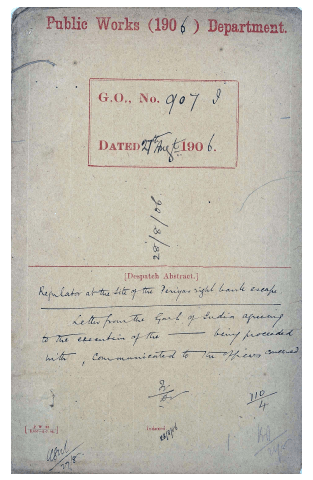 Public Works (1906) Department.
G.O., No. 907 I
DATED 27th Augt. 1906.
28/8/06
[Despatch Abstract.]
Regulator at the Site of the Periyar right bank escape
Letter from the Govt. of India agreeing
to the execution of the ——— being proceeded
with, Communicated to the officers concerned
110/4
Indexed
27/8